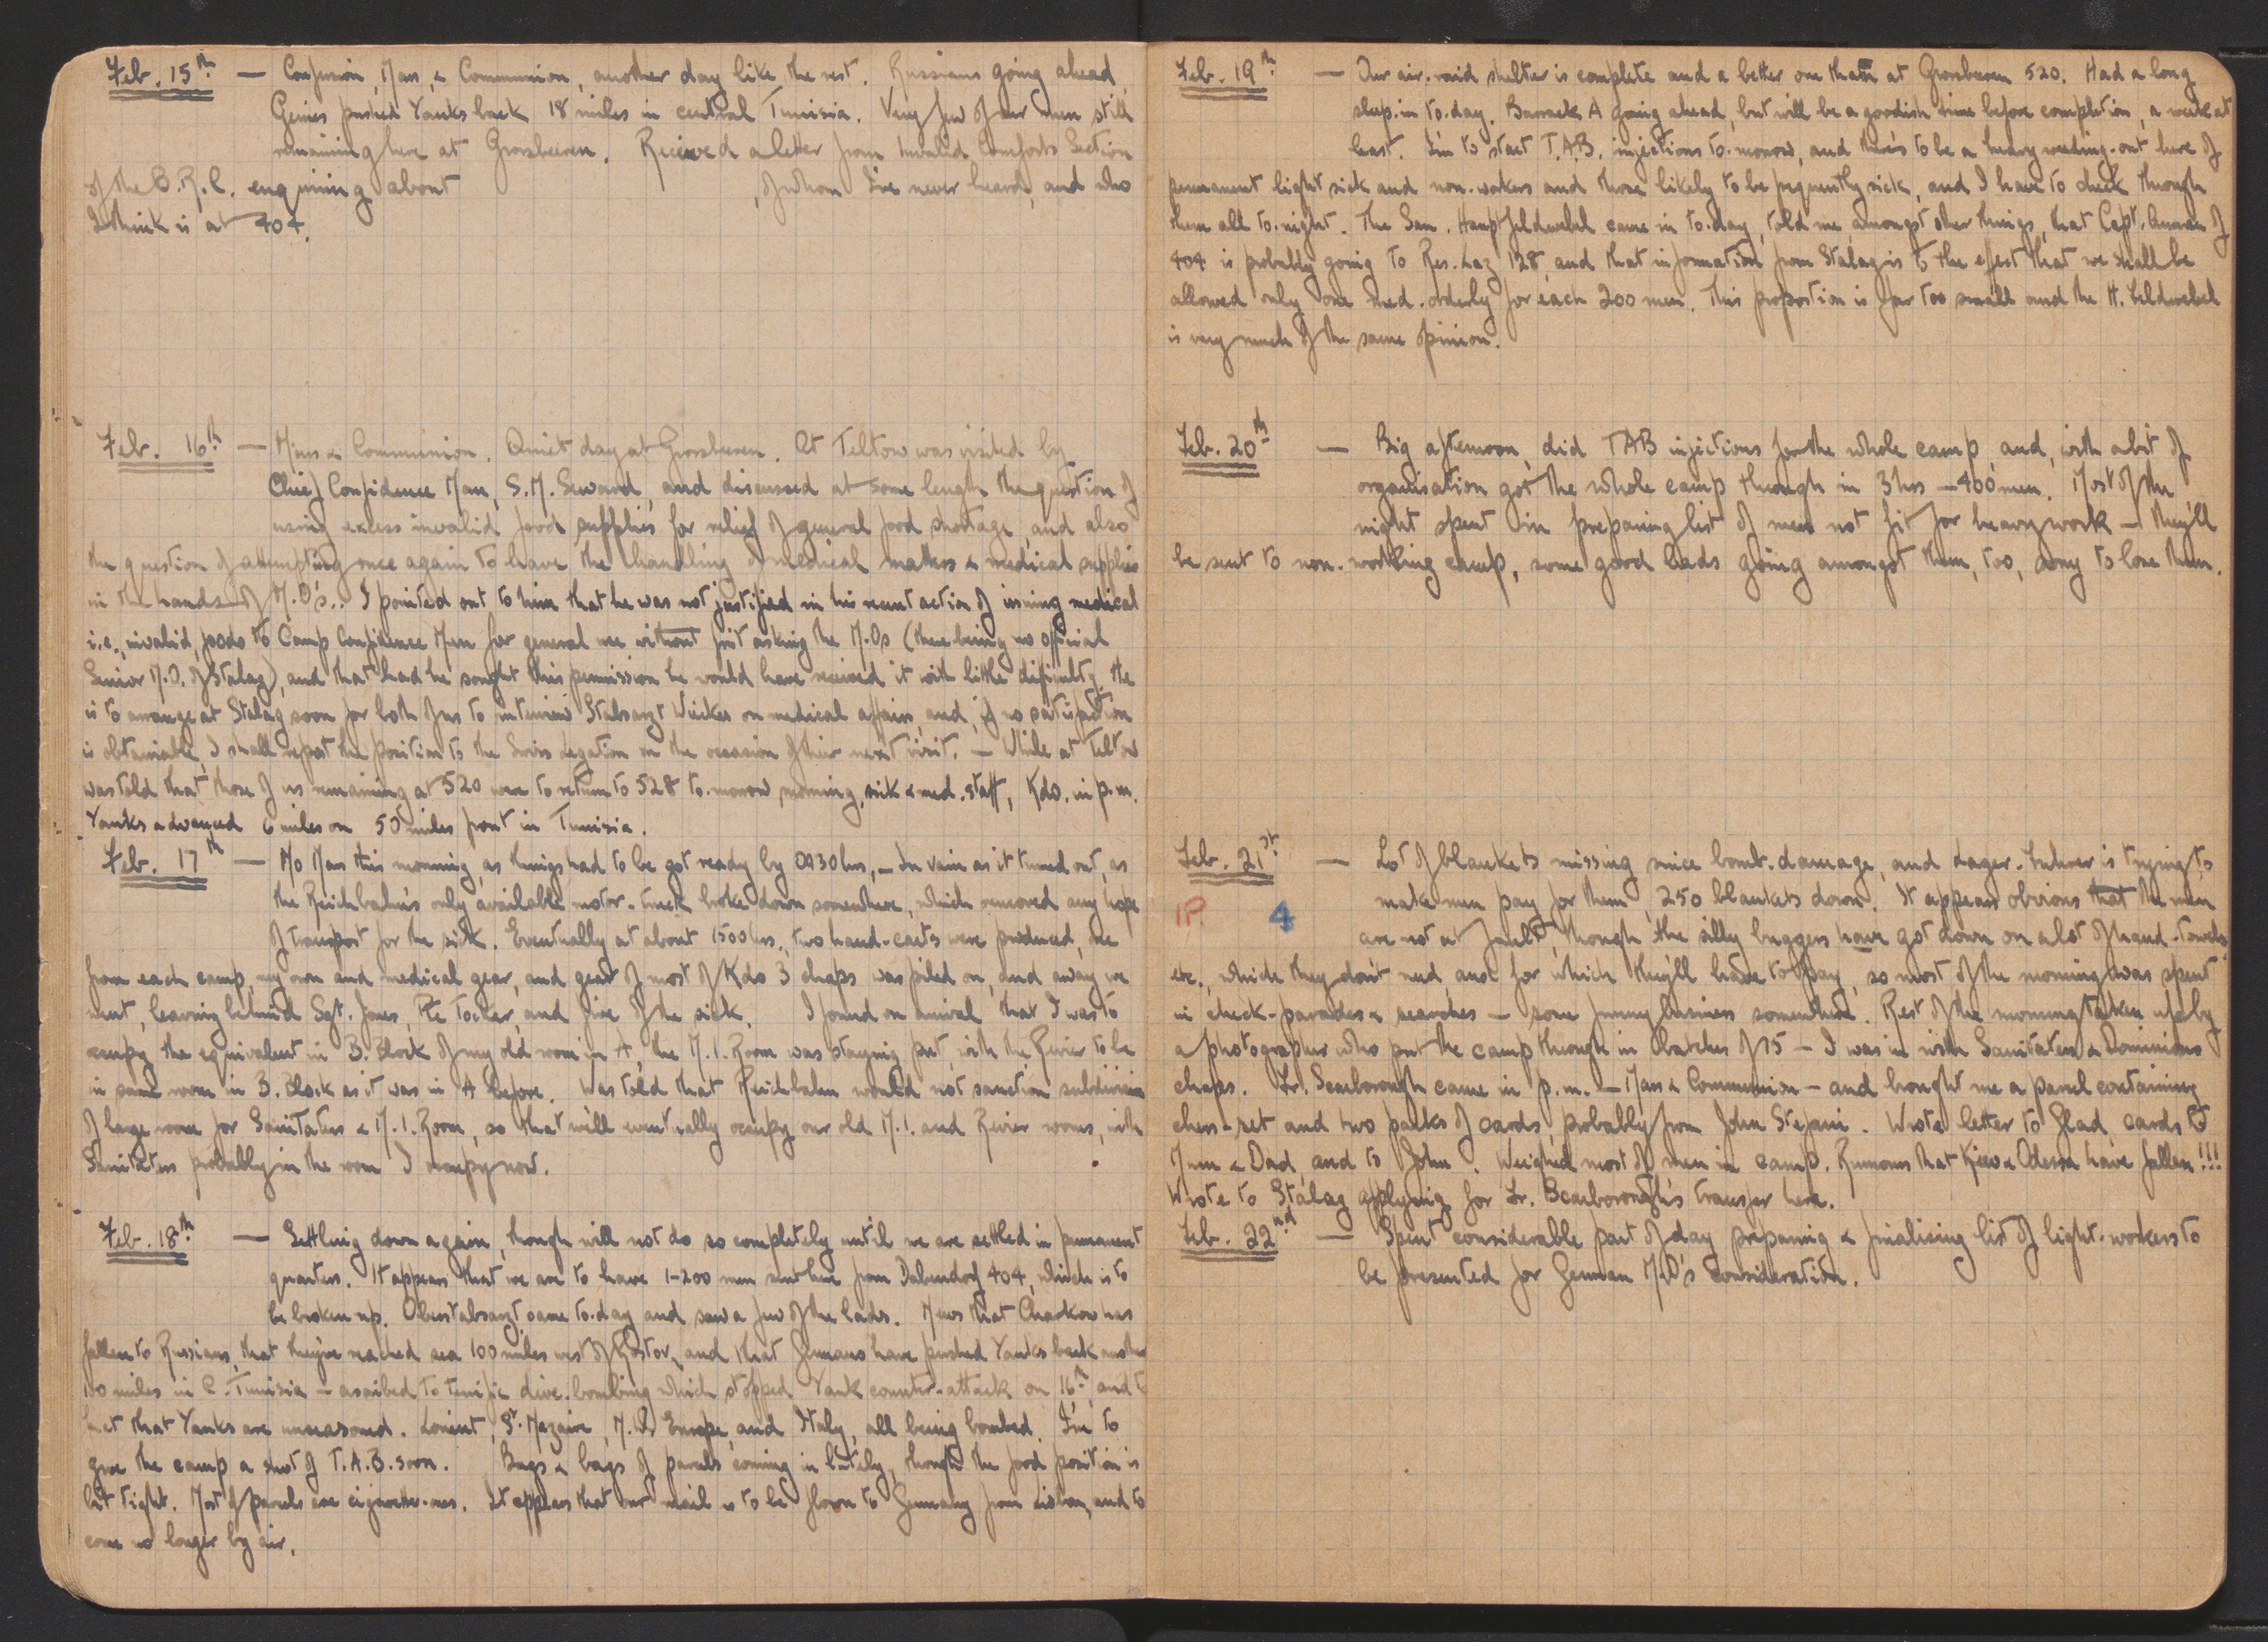 Feb. 15th — Confession, Mass, & Communion, another day like the rest. Russians going ahead,
Gerries pushed Yanks back 18 miles in central Tunisia. Very few of our men still
remaining here at Grossbeeren. Received a letter from Invalid Comforts Section
of the B.R.C. enquiring about , of whom I've never heard, and who
I think is at 404.
Feb. 16th — Mass & Communion. Quiet day at Grossbeeren. At Teltow was visited by
Chief Confidence Man, S.M. Seward, and discussed at some length the question of
using excess invalid food supplies for relief of general food shortage, and also
the question of attempting once again to have the handling of medical matters & medical supplies
in the hands of M.O's.. I pointed out to him that he was not justified in his recent action of issuing medical
i.e., invalid, foods to Camp Confidence Men for general use without first asking the M.Os (there being no official
Senior M.O. of Stalag), and that had he sought this permission he would have received it with little difficulty. He
is to arrange at Stalag soon for both of us to interview Stabsarzt on medical affairs, and, if no satisfaction
is obtainable, I shall report the position to the Swiss Legation on the occasion of their next visit. — While at Teltow
was told that those of us remaining at 520 were to return to 528 to-morrow morning, sick & med. staff, Kdo. in p.m.
Yanks advanced 6 miles on 50 miles front in Tunisia.
Feb. 17th — No Mass this morning, as things had to be got ready by 0930 hrs, — In vain as it turned out, as
the Reichbahn's only available motor-truck broke down somewhere, which removed any hope
of transport for the sick. Eventually at about 1500 hrs, two hand-carts were produced, one
from each camp, my own and medical gear, and gear of most of Kdo 3 chaps was piled on, and away we
went, leaving behind Sgt. Jones, Pte Tocker, and five of the sick. I found on arrival that I was to
occupy the equivalent in B. Block of my old room in A, the M.I. Room was staying put, with the Revier to be
in same room in B. Block as it was in A before. Was told that Reichbahn would not sanction subdivision
of large room for Sanitaters & M.I. Room, so that we'll eventually occupy our old M.I. and Revier rooms, with
Sanitaters probably in the room I occupy now.
Feb. 18th — Settling down again, though will not do so completely until we are settled in permanent
quarters. It appears that we are to have 1-200 men sent here from Dabendorf 404, which is to
be broken up. Oberstabsarzt came to-day and saw a few of the lads. News that Charkow has
fallen to Russians, that they've reached sea 100 miles west of Rostov, and that Germans have pushed Yanks back another
miles in C. Tunisia — ascribed to terrific dive-bombing which stopped Yank counter-attack on 16th, and to
fact that Yanks are unseasoned. Lorient, St. Nazaire, N.W. Europe, and Italy, all being bombed. I'm to
give the camp a shot of T.A.B. soon. Bags & bags of parcels coming in lately, though the food position is
bit tight. Most of parcels are cigarette-ones. It appears that our mail is to be flown to Germany from Lisbon, and to
come no longer by air.
Feb. 19th — Our air-raid shelter is complete and a better one than at Grossbeeren 520. Had a long
sleep-in to-day. Barrack A going ahead, but will be a goodish time before completion, a week at
least. I'm to start T.A.B. injections to-morrow, and there's to be a heavy weeding-out here of
permanent light sick and non-workers and those likely to be frequently sick, and I have to check through
them all to-night. The San. Hauptfeldwebel came in to-day, told me, amongst other things, that Capt. of
404 is probably going to Res. Laz 128, and that information from Stalag is to the effect that we shall be
allowed only one med. orderly for each 200 men. This proportion is far too small and the H. Feldwebel
is very much of the same opinion.
Feb. 20th — Big afternoon, did TAB injections for the whole camp, and, with a bit of
organisation got the whole camp through in 3 hrs — 400 men. Most of the
night spent in preparing list of men not fit for heavy work — they'll
be sent to non-working camp, some good lads going amongst them, too, sorry to lose them.
Feb. 21st — Lot of blankets missing since bomb-damage, and Lager-Fuhrer is trying to
make men pay for them, 250 blankets down. It appears obvious that the men
1P. 4
are not at fault, though the silly buggers have got down on a lot of hand-towels
etc., which they don't need, and for which they'll have to pay, so most of the morning was spent
in check-parades & searches — some funny business somewhere. Rest of the morning taken up by
a photographer who put the camp through in batches of 15 — I was in with Sanitaters & Dominions
chaps. Fr. Scarborough came in p.m. — Mass & Communion — and brought me a parcel containing
chess-set and two packs of cards, probably from John Stefani. Wrote letter to Glad, cards to
Mum & Dad, and to John. Weighed most of men in camp. Rumours that Kiev & Odessa have fallen!!!
Wrote to Stalag applying for Fr. Scarborough's transfer here.
Feb. 22nd — Spent considerable part of day preparing & finalising list of light-workers to
be presented for German M.O's consideration.